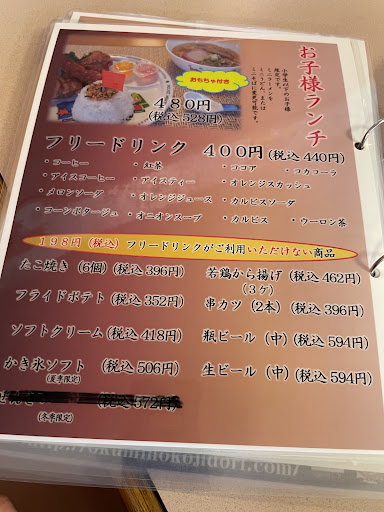 お子様ランチ
小学生以下のお子様
限定です。
ミニラーメンを
ミニうどん、または
ミニそばに変更可能です。
おもちゃ付き
480円
(税込528円)
フリードリンク 400円(税込440円)
・コーヒー ・紅茶 ・ココア ・コカコーラ
・アイスコーヒー ・アイスティー ・オレンジスカッシュ
・メロンソーダ ・オレンジジュース ・カルピスソーダ
・コーンポタージュ ・オニオンスープ ・カルピス ・ウーロン茶
198円(税込)フリードリンクがご利用いただけない商品
たこ焼き (6個)(税込396円) 若鶏から揚げ(税込462円)
(3ケ)
フライドポテト(税込352円) 串カツ (2本)(税込396円)
ソフトクリーム(税込418円) 瓶ビール (中)(税込594円)
かき氷ソフト (税込506円) 生ビール (中)(税込594円)
(夏季限定)
(税込572円)
(冬季限定)